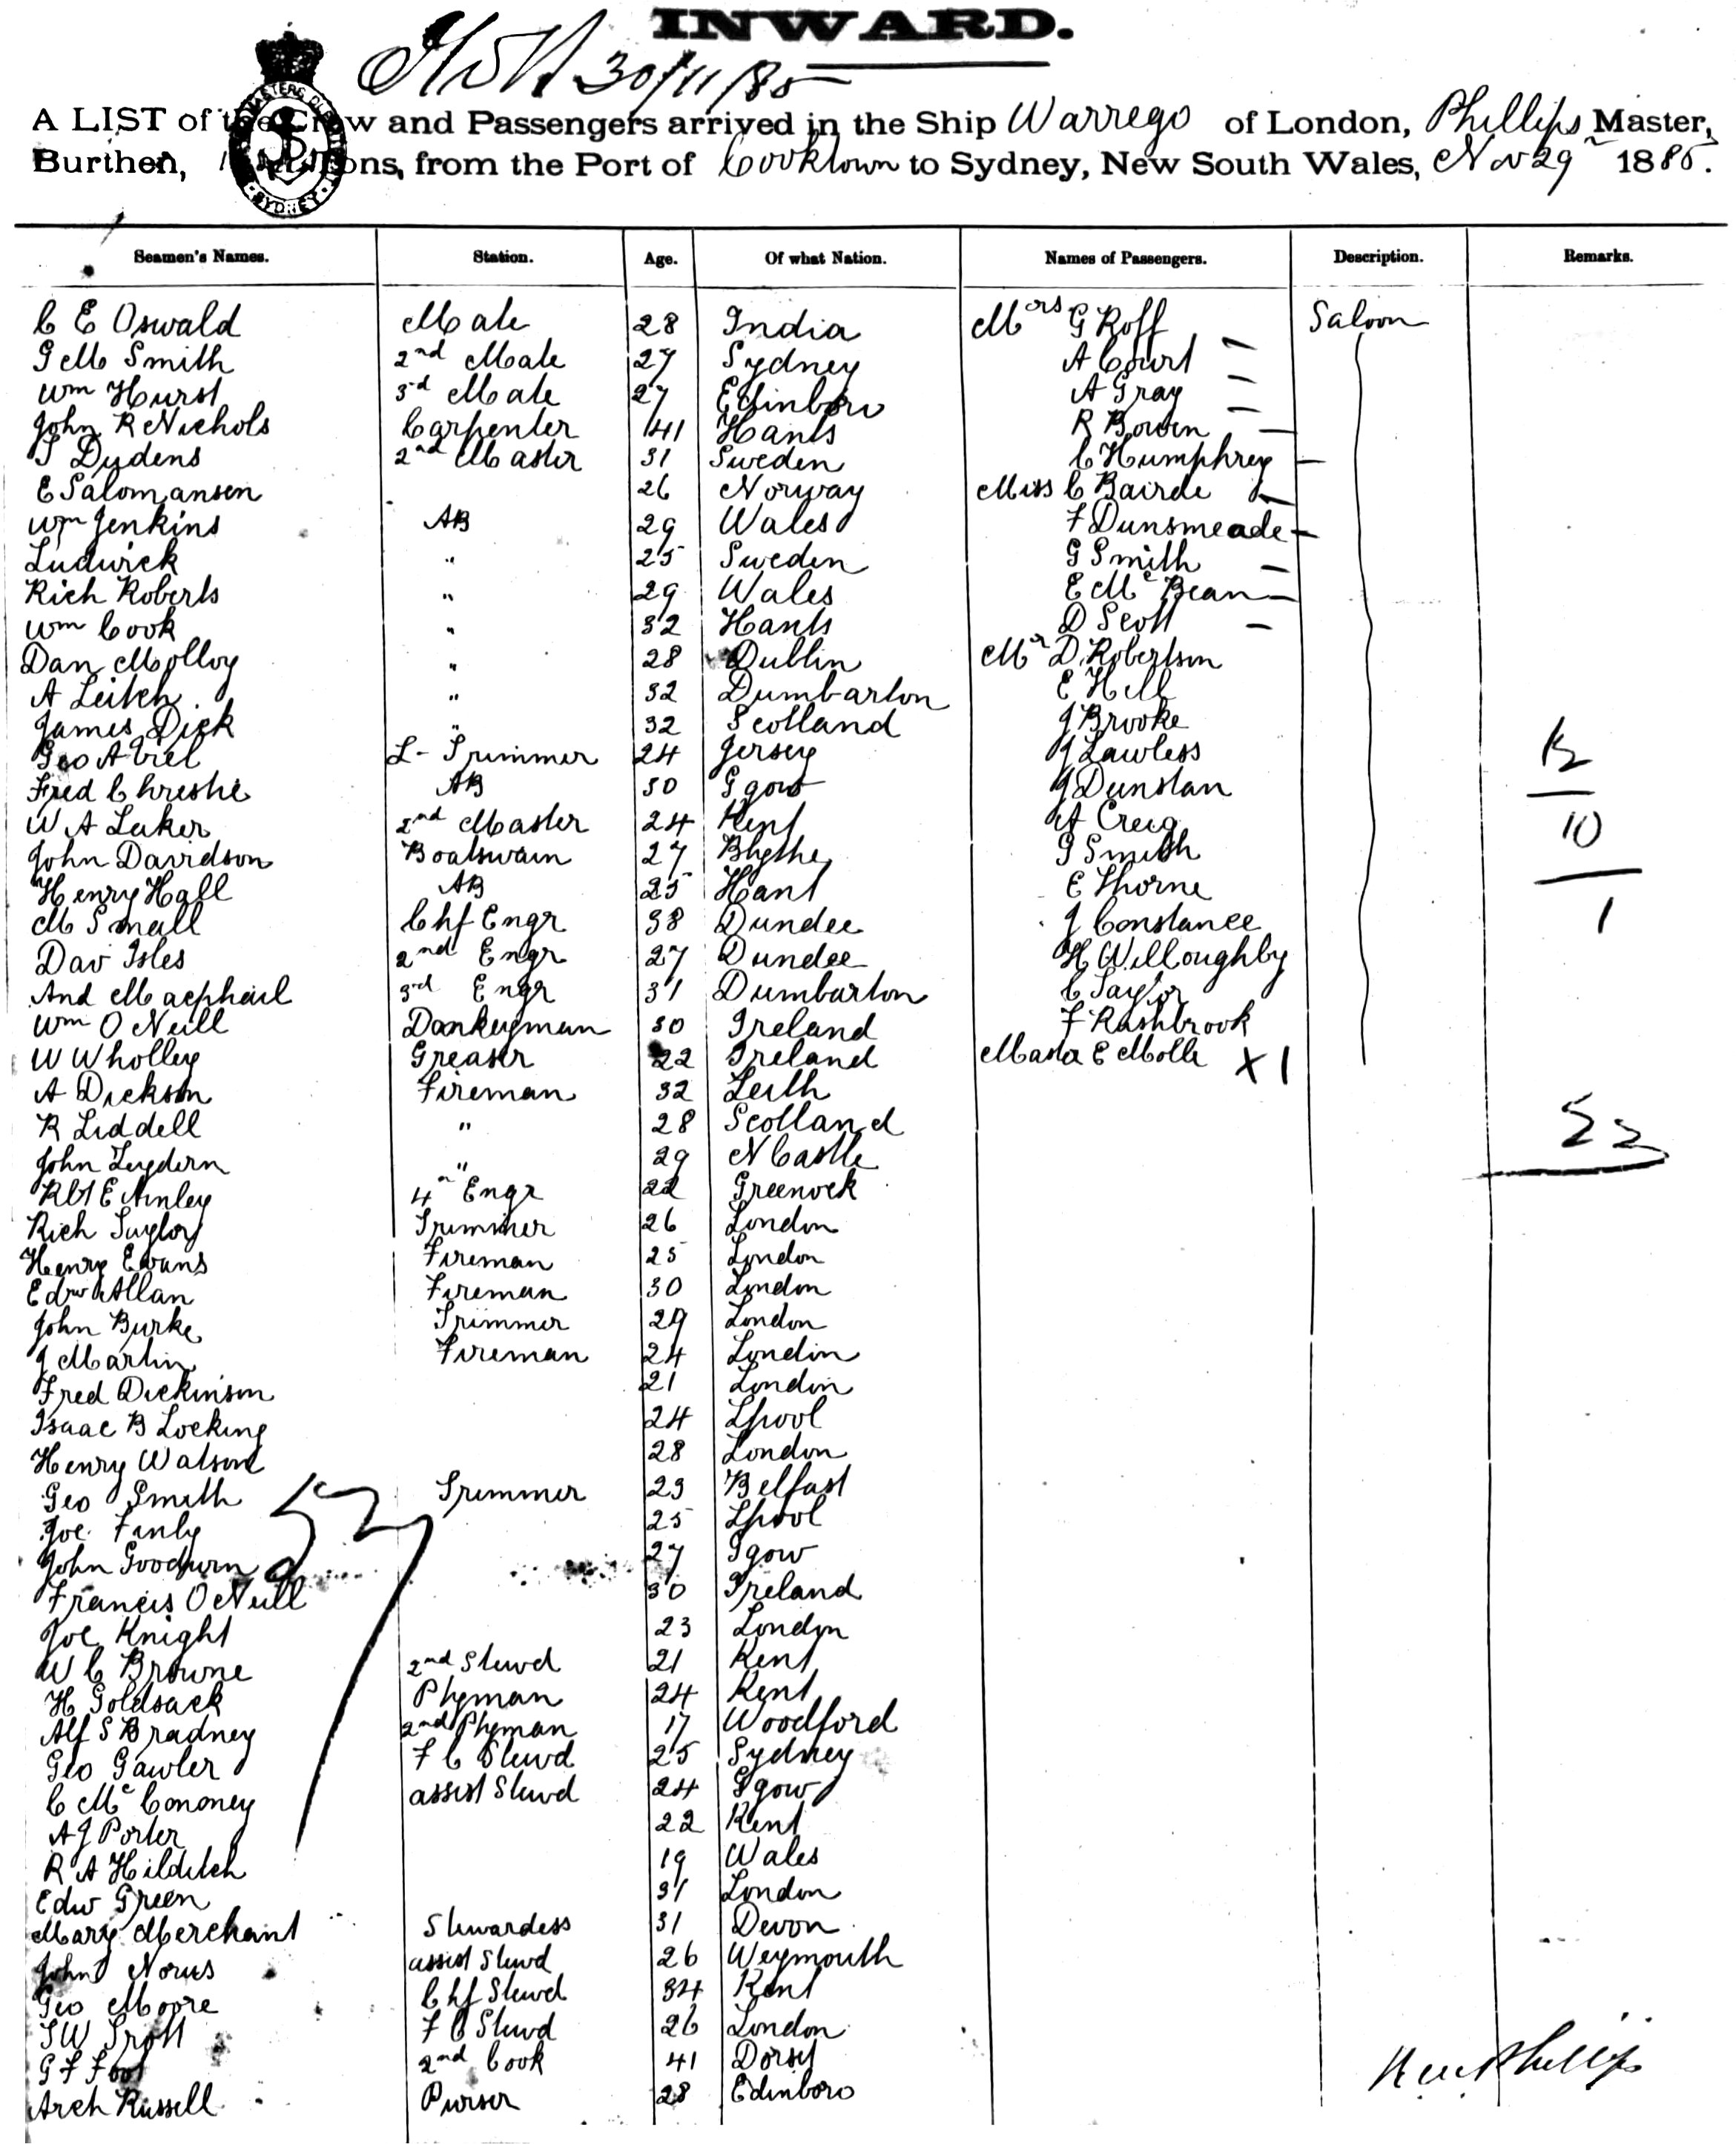 INWARD.
30/11/85
A LIST of the Crew and Passengers arrived in the Ship Warrego of London, Phillips Master,
Burthen, tons, from the Port of Cooktown to Sydney, New South Wales, Nov 29 1885.
Seamen's Names. Station. Age. Of what Nation. Names of Passengers. Description. Remarks.
C E Oswald Mate 28 India Mrs G Roff Saloon
G M Smith 2nd Mate 27 Sydney A Court —
Wm Hurst 3rd Mate 27 Edinboro A Gray —
John R Nichols Carpenter 41 Hants R Bowen —
T Dydens 2nd Master 31 Sweden C Humphrey —
E Salomansen 26 Norway Miss C Bairde —
Wm Jenkins AB 29 Wales F Dunsmeade —
Ludwick " 25 Sweden G Smith —
Rich Roberts " 29 Wales E Mc Bean —
Wm Cook " 32 Hants D Scott —
Dan Molloy " 28 Dublin Mr D Robertson
A Leitch " 32 Dumbarton E Hill
James Dick " 32 Scotland J Brooke
Geo Abiel L- Trimmer 24 Jersey J Lawless 12
Fred Chrestie AB 30 Ggow J Dunstan
W A Laker 2nd Master 24 Kent A Creig 10
John Davidson Boatswain 27 Blythe G Smith
Henry Hall AB 25 Hant E Thorne
M Small Chf Engr 38 Dundee J Constance 1
Dav Isles 2nd Engr 27 Dundee H Willoughby
And Macphail 3rd Engr 31 Dumbarton C Taylor
Wm O Neill Donkeyman 30 Ireland F Rashbrook
W Wholley Greaser 22 Ireland Master E Molle X 1
A Dickson Fireman 32 Leith
R Liddell " 28 Scotland 23
John Leydern " 29 N Castle
Rbt E Ainley 4th Engr 22 Greenock
Rich Taylor Trimmer 26 London
Henry Evans Fireman 25 London
Edw Allan Fireman 30 London
John Burke Trimmer 29 London
J Martin Fireman 24 London
Fred Dickinson 21 London
Isaac B Locking 24 Lpool
Henry Watson 28 London
Geo Smith Trimmer 23 Belfast
57
Joe Finly 25 Lpool
John Goodwin 27 Ggow
Francis O Neill 30 Ireland
Joe Knight 23 London
W C Browne 2nd Stewd 21 Kent
H Goldsack Ptyman 24 Kent
Alf S Bradney 2nd Ptyman 17 Woodford
Geo Gawler F C Stewd 25 Sydney
C Mc Cononey assist Stewd 24 Ggow
A J Porter 22 Kent
R A Hilditch 19 Wales
Edw Green 31 London
Mary Merchant Stewardess 31 Devon
John Norris assist Stewd 26 Weymouth
Geo Moore Chf Stewd 34 Kent
T W Trott F C Stewd 26 London
G F Foot 2nd Cook 41 Dorset
Arch Russell Purser 28 Edinboro
Phillips